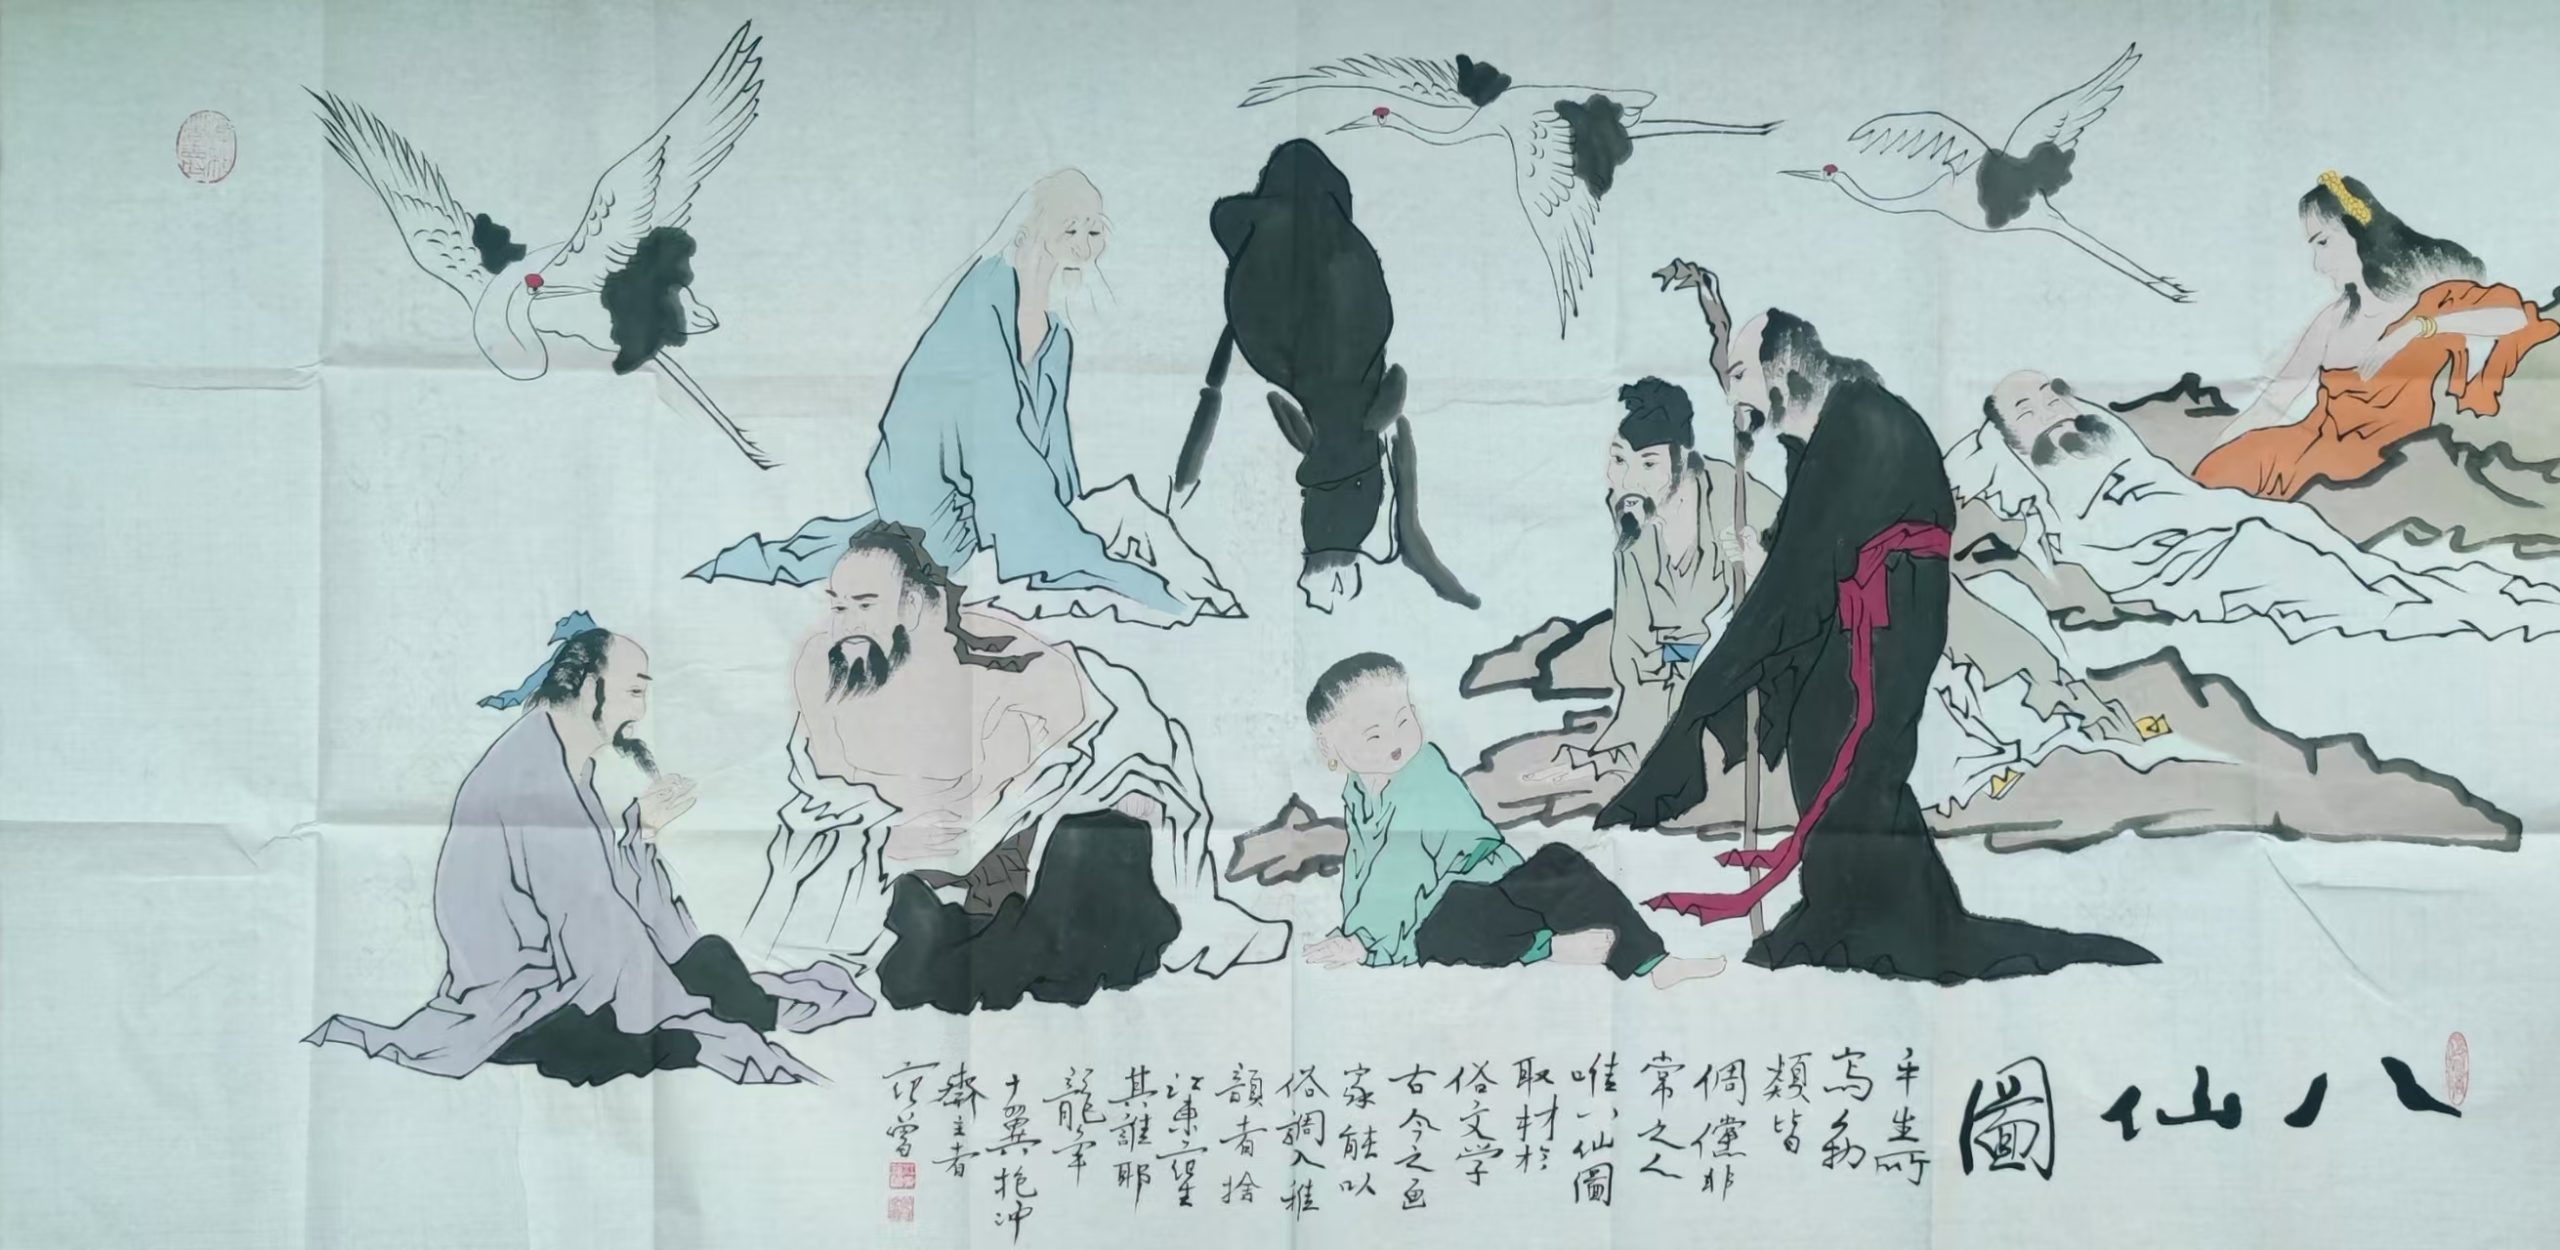 八仙圖
平生所
寫多勒
類皆
倜儻非
常之人
唯八仙圖
取材於
俗文学
古今之画
家能以
俗調入雅
韻者捨
江東范生
其誰耶
龍年
十翼抱冲
齋主者
范曾